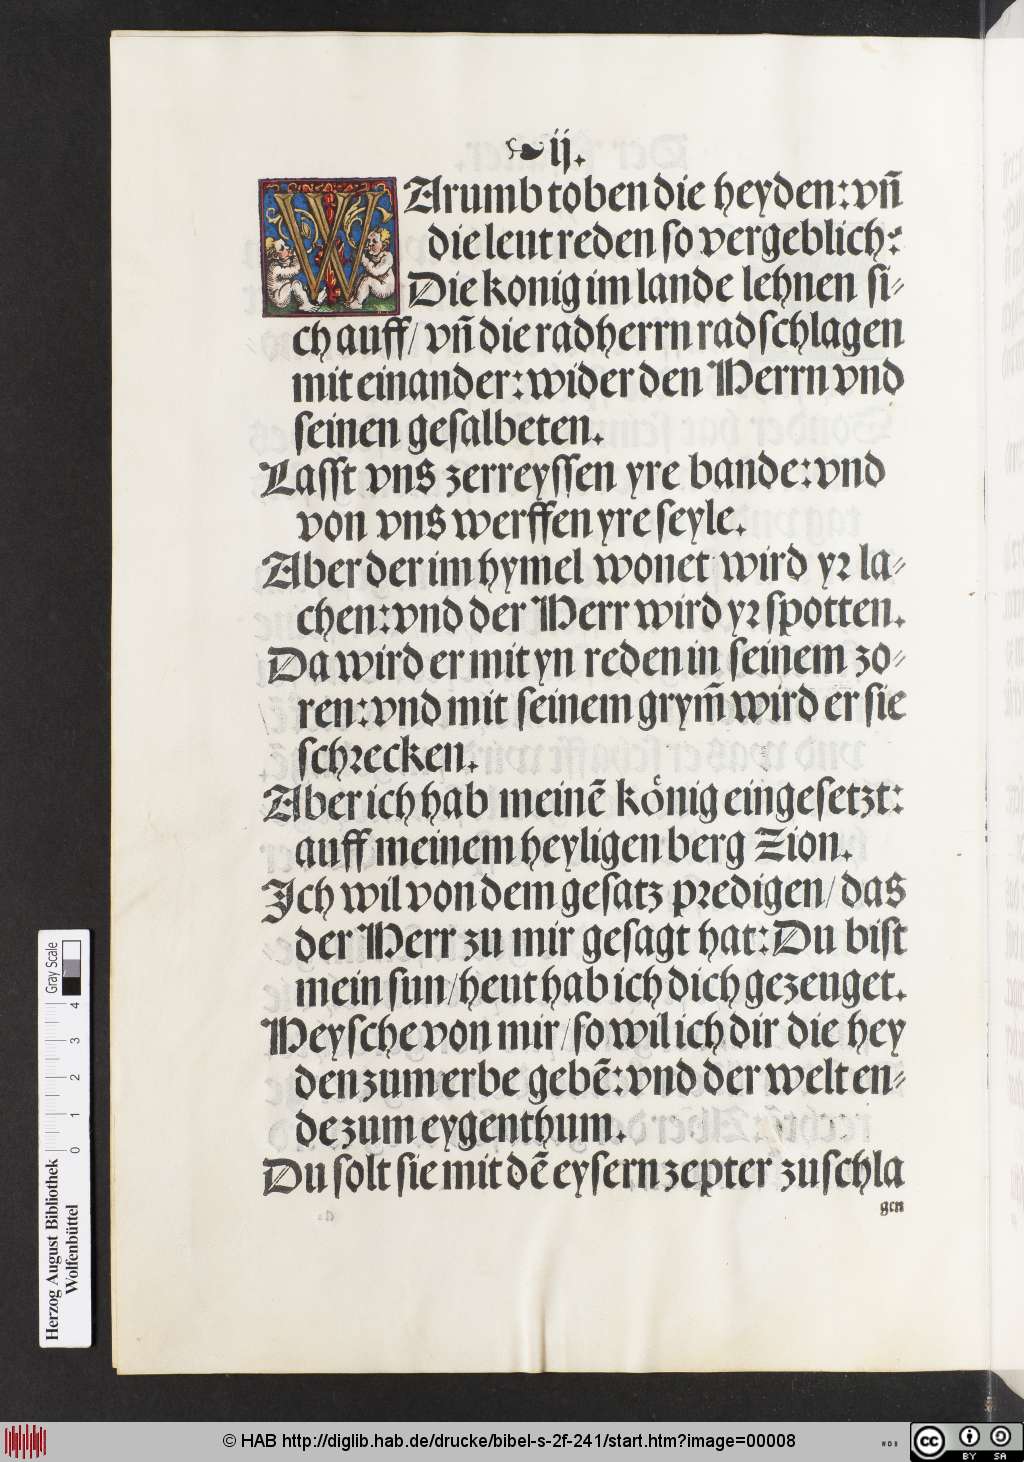 ij.
WArumb toben die heyden: vñ
die leut reden so vergeblich:
Die konig im lande lehnen si-
ch auff / vñ die radherrn radschlagen
mit einander: wider den Herrn vnd
seinen gesalbeten.
Lasst vns zerreyssen yre bande: vnd
von vns werffen yre seyle.
Aber der im hymel wonet wird yr la-
chen: vnd der Herr wird yr spotten.
Da wird er mit yn reden in seinem zo-
ren: vnd mit seinem grym̃ wird er sie
schrecken.
Aber ich hab meinẽ könig eingesetzt:
auff meinem heyligen berg Zion.
Ich wil von dem gesatz predigen / das
der Herr zu mir gesagt hat: Du bist
mein sun / heut hab ich dich gezeuget.
Heysche von mir / so wil ich dir die hey
den zum erbe gebẽ: vnd der welt en-
de zum eygenthum.
Du solt sie mit dẽ eysern zepter zuschla
gen
Herzog August Bibliothek
Wolfenbüttel
0 1 2 3 4
Gray Scale
© HAB http://diglib.hab.de/drucke/bibel-s-2f-241/start.htm?image=00008
WDB
cc BY SA